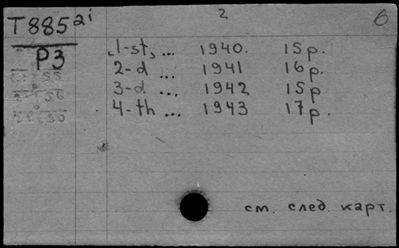 T885 2i
2
6
P3
1-st, ... 1940. 15 p.
2-d ... 1941 16 p.
3-d ... 1942 15 p
4-th ... 1943 17 p.
см. след. карт.